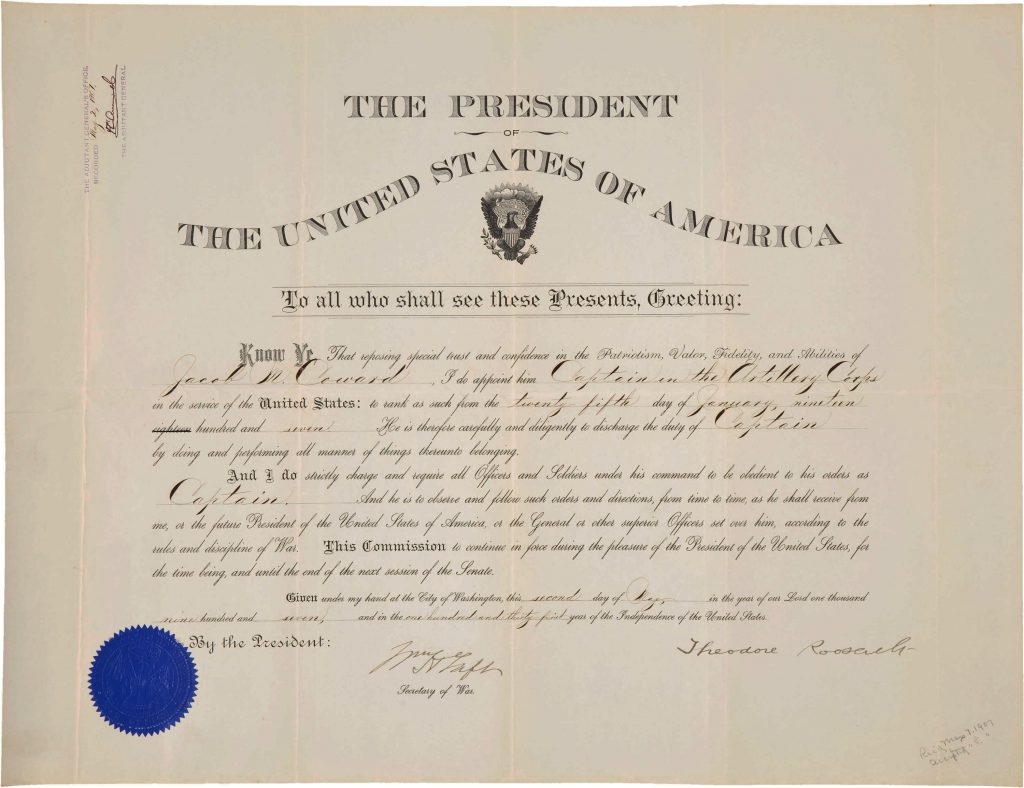 THE ADJUTANT GENERAL'S OFFICE,
RECORDED May 2, 1907.
THE ADJUTANT GENERAL.
THE PRESIDENT
OF
THE UNITED STATES OF AMERICA
To all who shall see these Presents, Greeting:
Know Ye, That reposing special trust and confidence in the Patriotism, Valor, Fidelity, and Abilities of
Jacob M. Coward, I do appoint him Captain in the Artillery Corps
in the service of the United States: to rank as such from the twenty fifth day of January, nineteen
eighteen hundred and seven He is therefore carefully and diligently to discharge the duty of Captain
by doing and performing all manner of things thereunto belonging.
And I do strictly charge and require all Officers and Soldiers under his command to be obedient to his orders as
Captain. And he is to observe and follow such orders and directions, from time to time, as he shall receive from
me, or the future President of the United States of America, or the General or other superior Officers set over him, according to the
rules and discipline of War. This Commission to continue in force during the pleasure of the President of the United States, for
the time being, and until the end of the next session of the Senate.
Given under my hand at the City of Washington, this second day of May, in the year of our Lord one thousand
nine hundred and seven, and in the one hundred and thirty first year of the Independence of the United States.
By the President:
Theodore Roosevelt
Wm H Taft
Secretary of War.
Rec'd May 7, 1907